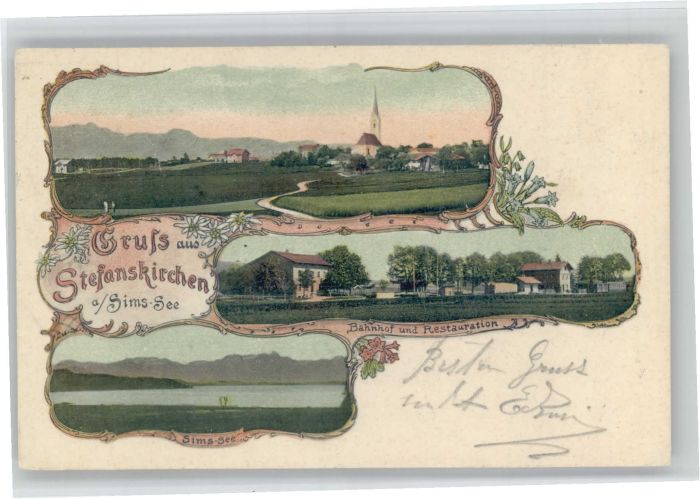 Gruß aus
Stefanskirchen
a/Sims-See
Bahnhof und Restauration
Sims-See
Besten Gruss